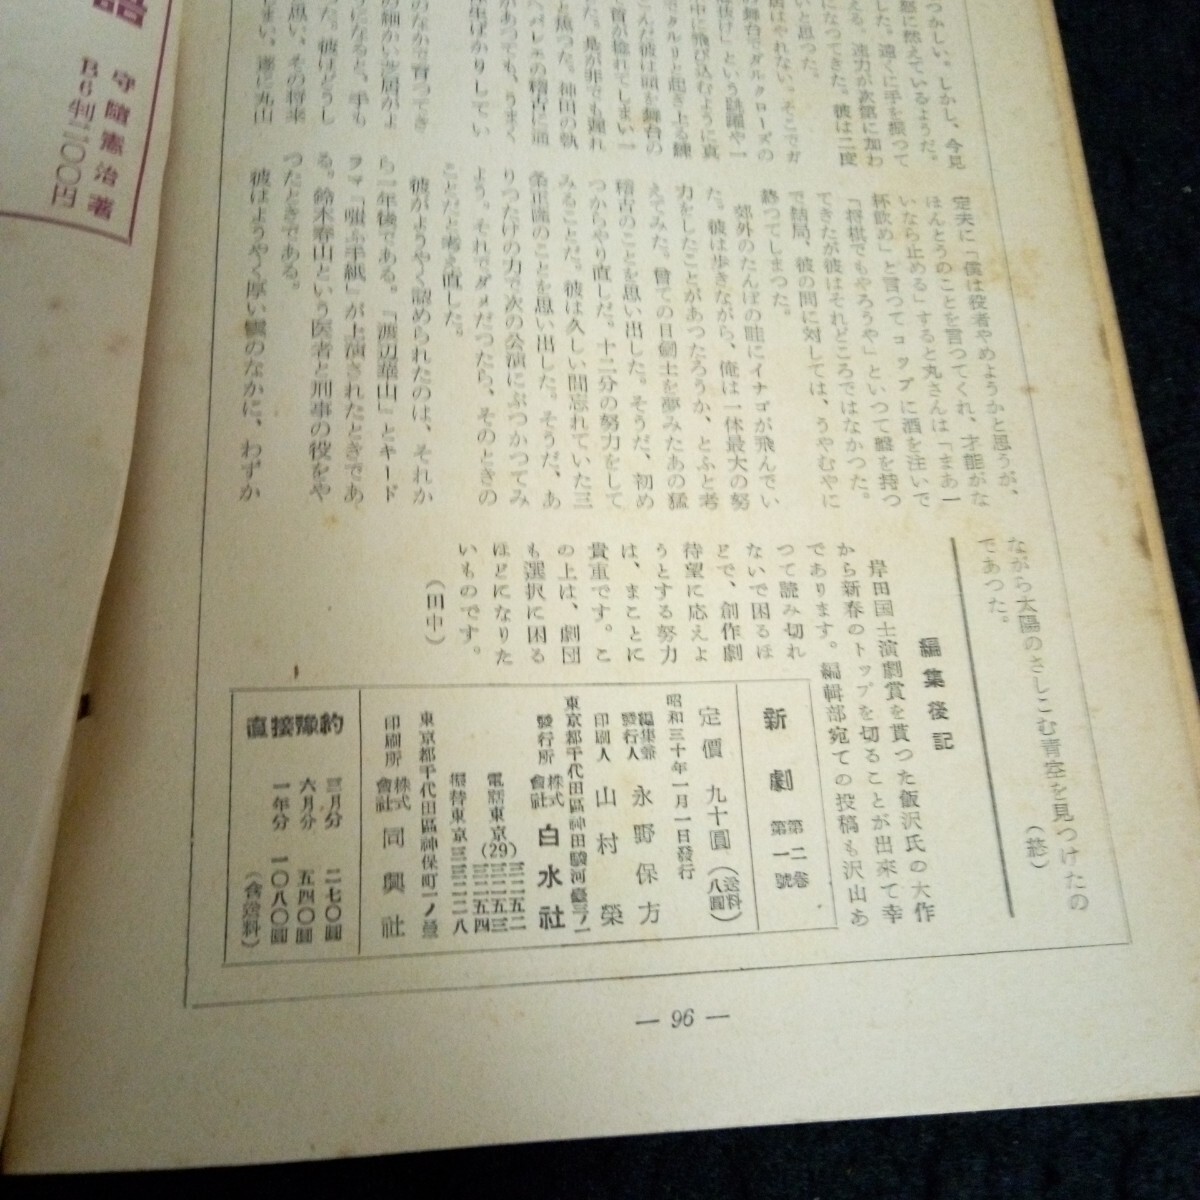 守随憲治著
B6判二〇〇円
つかしい。しかし、今見
部に燃えているようだ。
した。遠くに手を振って
える。速力が次第に加わ
になってきた。彼は二度
いと思った。
居はやれない。そこでガ
の舞台でダルクローズの
という跳躍や一
中に飛び込むように真
でクルリと起き上る練
こんだ彼は頭を舞台の
て首が捻れてしまい一
た。是が非でも遅れ
と焦った。神田の執
へバレエの稽古に通
があっても、うまく
ばかりしてい
のなかで育ってき
の細かい芝居がよ
になると、手も
った。彼はどうし
思い、その将来
まい、遂に丸山
定夫に「僕は役者やめようかと思うが、
ほんとうのことを言ってくれ、才能がな
いなら止める」すると丸さんは「まあ一
杯飲め」と言ってコップに酒を注いで
「将棋でもやろうや」といって盤を持つ
てきたが彼はそれどころではなかった。
で結局、彼の問に対しては、うやむやに
終ってしまった。
郊外のたんぼの畦にイナゴが飛んでい
た。彼は歩きながら、俺は一体最大の努
力をしたことがあつたろうか、とふと考
えてみた。曾ての日劇士を夢みたあの猛
稽古のことを思い出した。そうだ、初め
つからやり直しだ。十二分の努力をして
みることだ。彼は久しい間忘れていた三
条正面のことを思い出した。そうだ、あ
りつたけの力で次の公演にぶつかってみ
よう。それでダメだつたら、そのときの
ことだと考え直した。
彼がようやく認められたのは、それか
ら一年後である。「渡辺崋山」とキード
ラマ「嗤ふ手紙」が上演されたときであ
る。鈴木春山という医者と刑事の役をや
つたときである。
彼はようやく厚い雲のなかに、わずか
ながら太陽のさしこむ青空を見つけたの
であつた。
(終)
編集後記
岸田国士演劇賞を貰つた飯沢氏の大作
から新春のトップを切ることが出来て幸
であります。編輯部宛ての投稿も沢山あ
つて読み切れ
ないで困るほ
どで、創作劇
待望に応えよ
うとする努力
は、まことに
貴重です。こ
の上は、劇団
も選択に困る
ほどになりた
いものです。
(田中)
新劇 第二巻 第一號
定價 九十圓 (送料八圓)
昭和三十年一月一日發行
編集兼發行人 永野保方
印刷人 山村榮
東京都千代田區神田駿河臺三ノ一
發行所 株式會社 白水社
電話東京(29) 三二五二 三二五三 三二五四
振替東京三三二二八
東京都千代田區神保町一ノ
印刷所 株式會社 同興社
直接豫約
三月分 二七〇圓
六月分 五四〇圓
一年分 一〇八〇圓
(含送料)
— 96 —